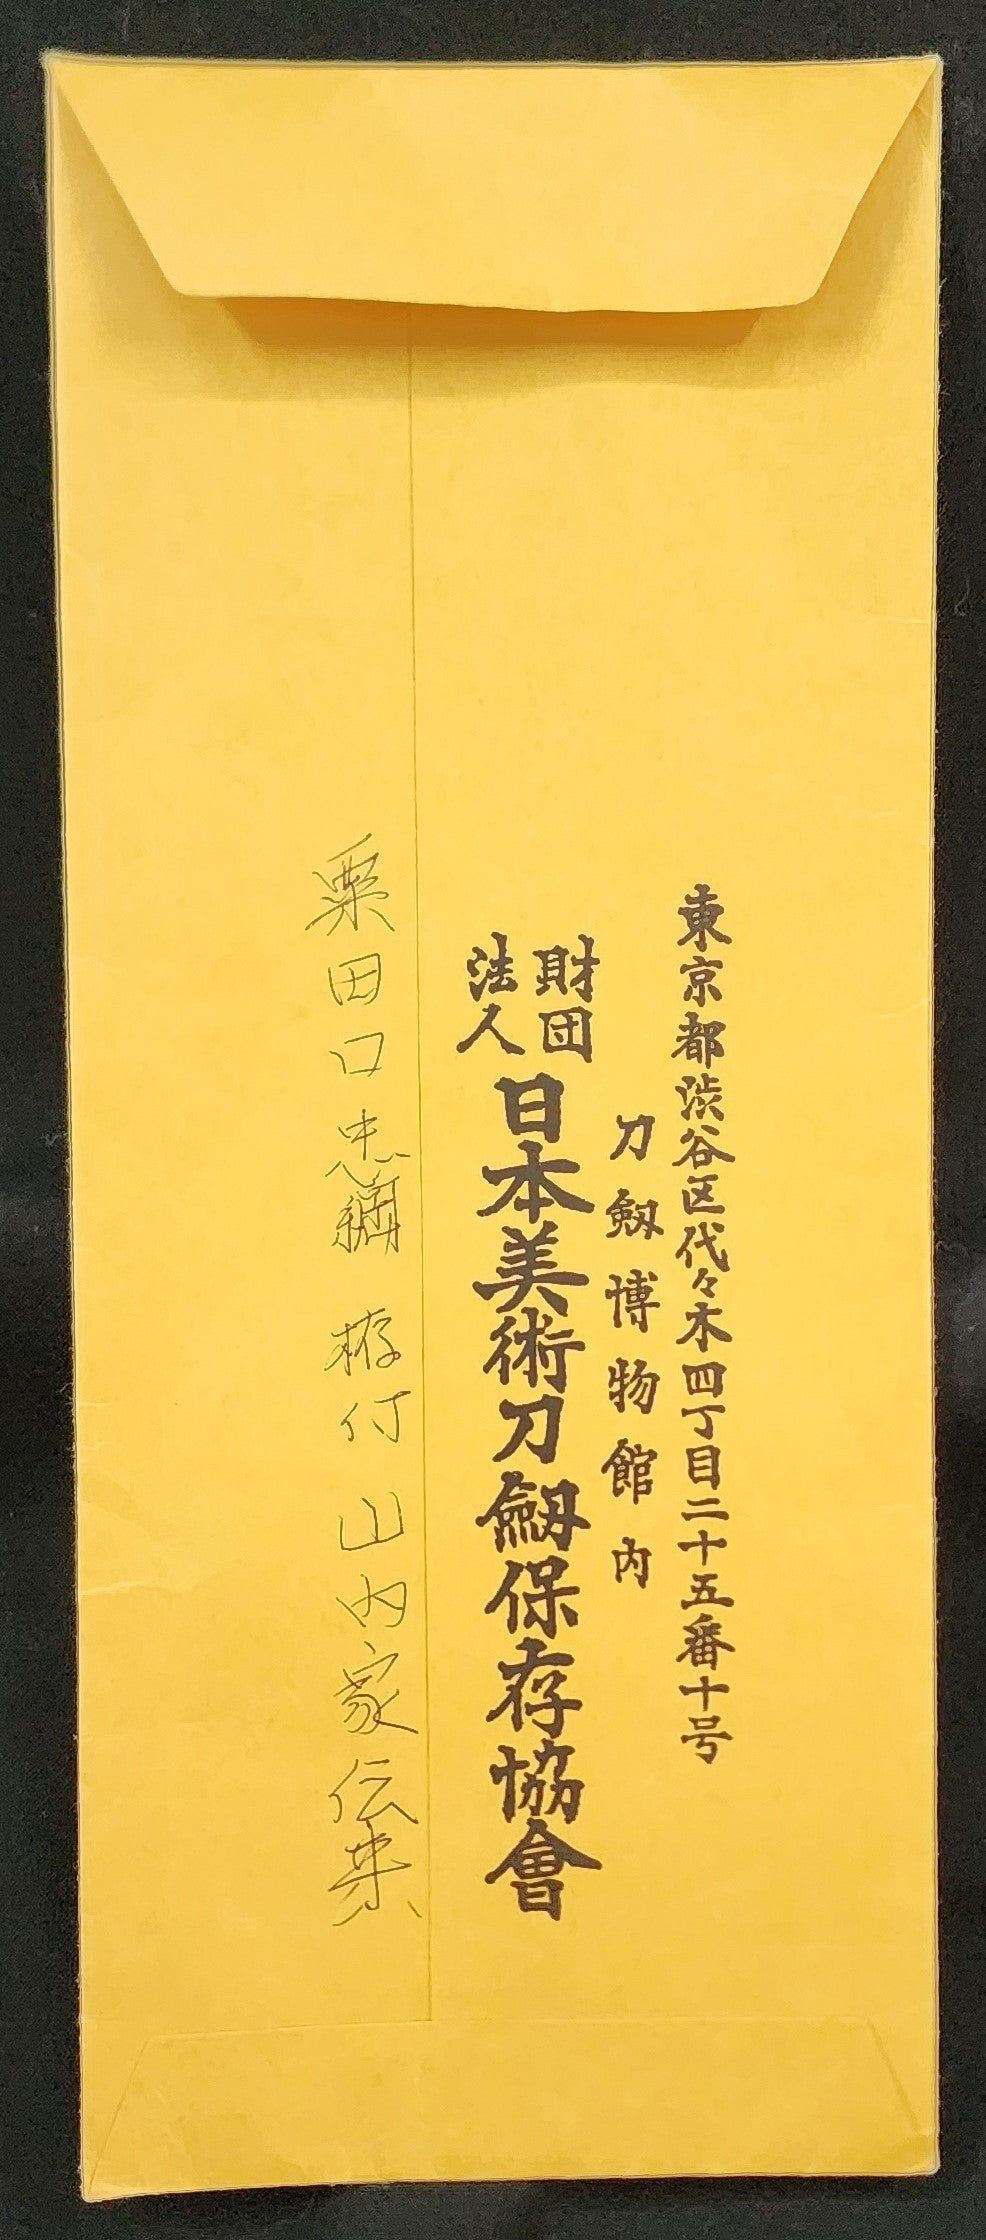 東京都渋谷区代々木四丁目二十五番十号
刀剱博物館内
財団
法人
日本美術刀剱保存協會
粟田口忠綱 栫付 山内家伝来